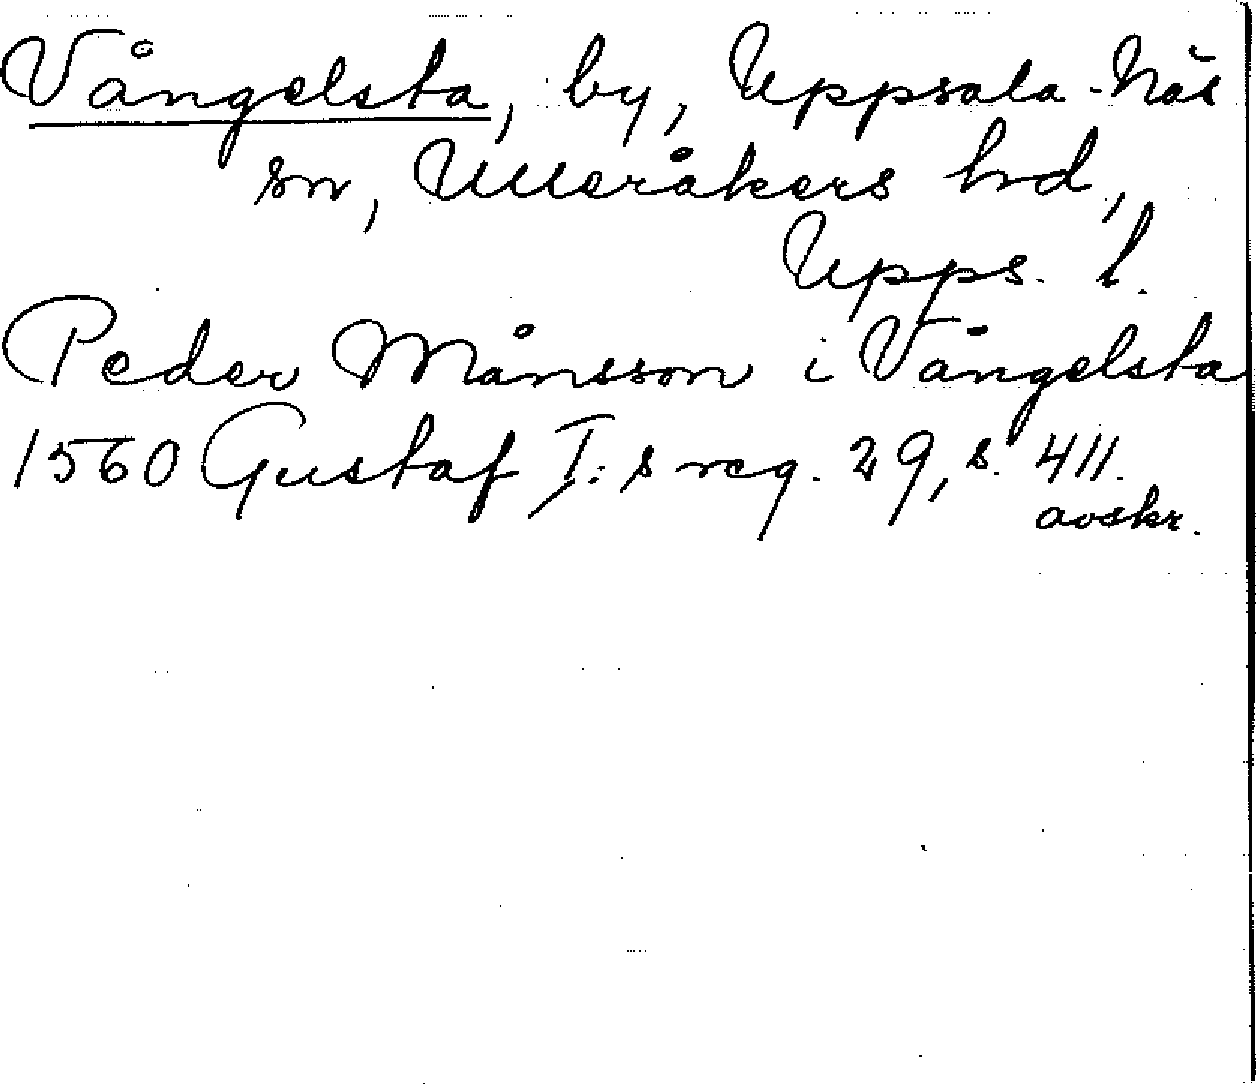 Vångelsta, by, Uppsala-Näs
sn, Ulleråkers hrd,
Upps. l.
Peder Månsson i Vångelsta
1560 Gustaf I:s reg. 29, s. 411.
avskr.